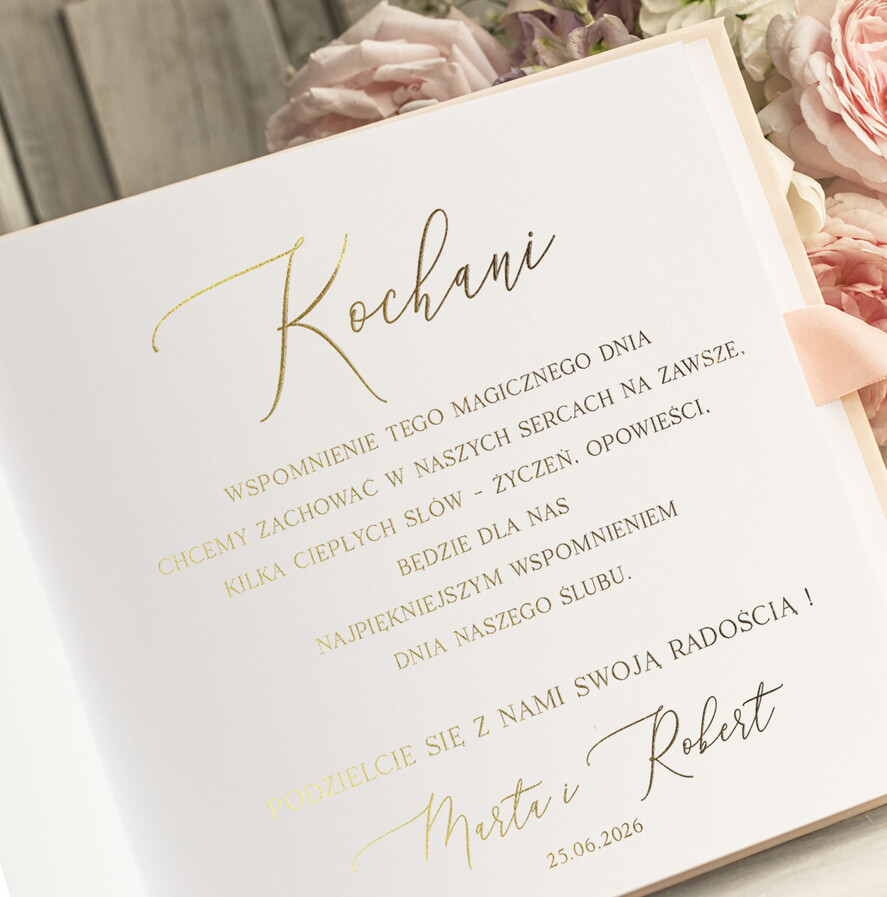 Kochani
WSPOMNIENIE TEGO MAGICZNEGO DNIA
CHCEMY ZACHOWAĆ W NASZYCH SERCACH NA ZAWSZE.
KILKA CIEPŁYCH SŁÓW - ŻYCZEŃ, OPOWIEŚCI,
BĘDZIE DLA NAS
NAJPIĘKNIEJSZYM WSPOMNIENIEM
DNIA NASZEGO ŚLUBU.
PODZIELCIE SIĘ Z NAMI SWOJĄ RADOŚCIĄ !
Marta i Robert
25.06.2026